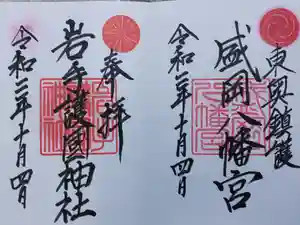 東奥鎮護
盛岡八幡宮
令和二年十月四日
奉拝
岩手護國神社
令和二年十月四日